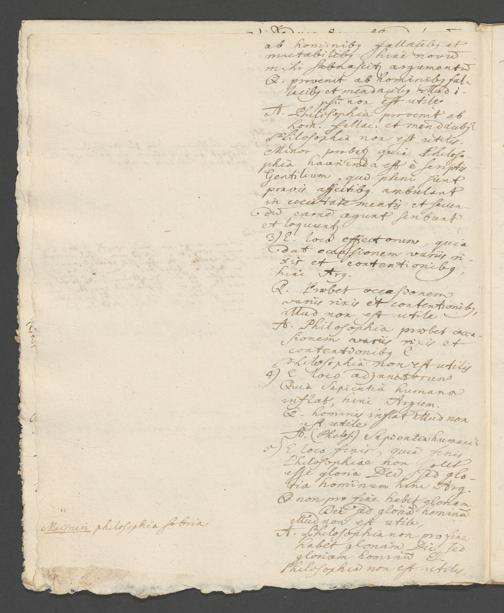 ab hominibq fallacibq et
mutabilibq hinc novum
mihi subnascitq argumentum
Q. provenit ab hominibq fal-
lacibq et mendacibq illud i-
psi non est utile
A. Philosophia provenit ab
hom. fallac. et mendacibq
Philosophia non est utilis.
Minor probatq quia Philoso-
phia haurienda est è scriptis
Gentilium, qui pleni sunt
pravis affectibq ambulant
in cœcitate mentis et secun-
dum carnem agunt sentiunt
et loquuntq
3) E. loco effectorum, quia
dat occasionem variis ri-
xis et contentionibq,
hinc Arg.
Q. Præbet occasionem
variis rixis et contentionibq
illud non est utile
A. Philosophia præbet occa-
sionem variis rixis et
contentionibq E
Philosophia non est utilis
4) E loco adjunctorum
Quia Sapientia humana
inflat, hinc Argum.
Q. homines inflat illud non
est utile
A. (Philos) Sapientia humana
5) E loco finis, quia finis
Philosophiae non solet
esse gloria Dei sed glo-
ria hominum hinc Arg.
Q non pro fine habet gloriam
Dei sed gloriam hominum
illud non est utile,
A. Philosophia non pro fine
habet gloriam Dei sed
gloriam hominum E.
Philosophia non est utilis.
philosophia sobria